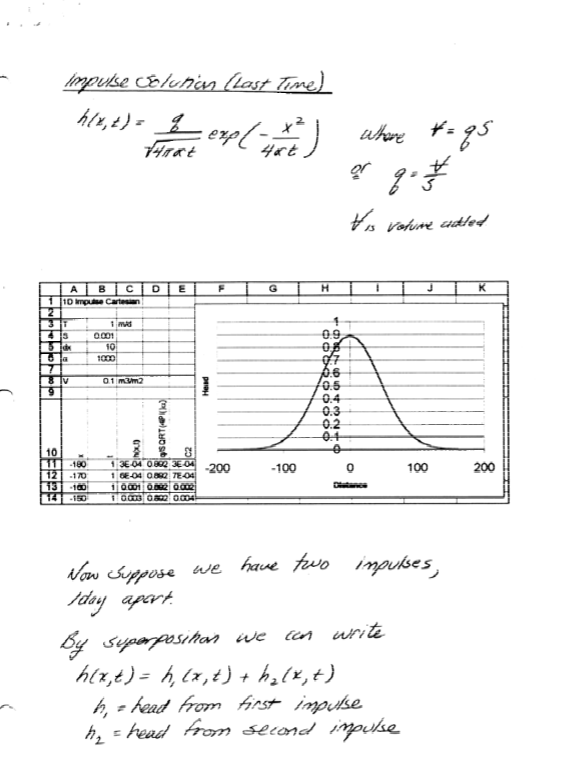 Impulse Solution (Last Time)
h(x,t) = q / √4παt exp(- x² / 4αt) where V = qS
or q = V / S
V is volume added
A B C D E F G H I J K
1 1D Impulse Cartesian
2
3 T 1 m/d
4 S 0.001
5 dx 10
6 α 1000
7
8 V 0.1 m3/m2
9
10 x t h(x,t) C2
11 -180 1 3E-04 0.892 3E-04
12 -170 1 6E-04 0.892 7E-04
13 -160 1 0.001 0.892 0.002
14 -150 1 0.003 0.892 0.004
Head
1
0.9
0.8
0.7
0.6
0.5
0.4
0.3
0.2
0.1
0
-200 -100 0 100 200
Distance
Now suppose we have two impulses,
1day apart.
By superposition we can write
h(x,t) = h₁(x,t) + h₂(x,t)
h₁ = head from first impulse
h₂ = head from second impulse